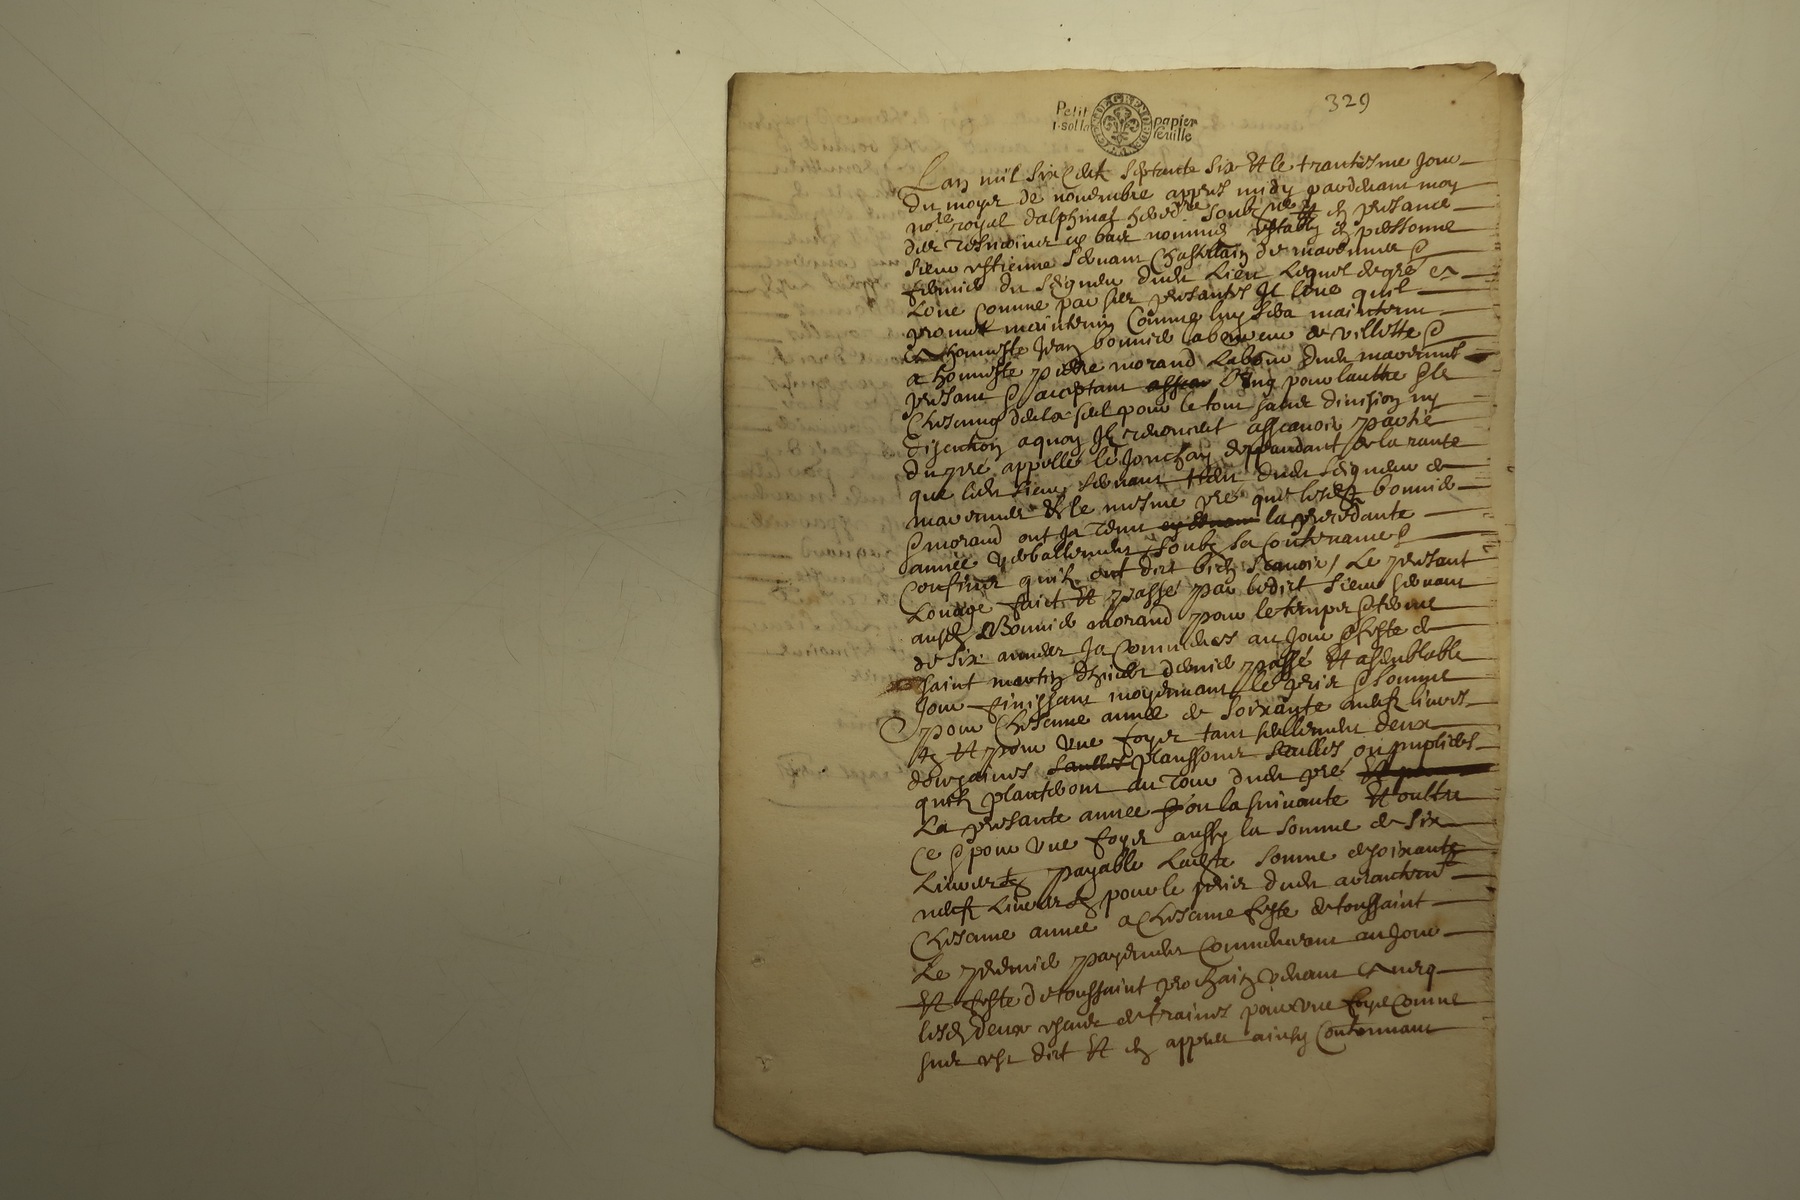 329
Petit papier
1·sol la feuille
Lan mil six cent septante six et le trantiesme jour
du moys de novembre appres midy pardevant moy
no.re royal dalphinal hered.re soubz.ne et en presance
des tesmoins en bas nommes estably en personne
sieur estienne servant chastelain de
fermier du seigneur dud lieu lequel de gré a
loue comme par ses presantes il loue quil
promet maintenir comme luy sera maintenu
a honneste Jean bonnier laboureur de villette &
a honneste pierre morand labour dud
presant & aceptant lung pour lautre & le
chescung deulx seul pour le tout sans division ny
discution a quoy ilz renoncent assavoir partie
du pré appellé le depandant de la rante
que led sieur servant tient dud seigneur de
et le mesme pré que lesd bonnier
& morand ont ja tenu la precedante
annee verballement soubz sa contenance &
confins quilz ont dict bien scavoir / Le presant
louage faict et passé par ledict sieur servant
ausd bonnier morand pour le temps & terme
de six annees ja commencees au jour & feste de
saint martin dernier passé et a semblable
jour finissant moyennant le prix & somme
pour chescune année de soixante neuf livres
tz et pour une foys tant seullement deux
dousaines planssons saulles ou puplies
quilz planteront au tour dud pré
La presante annee ou la suivante et oultre
ce & pour une foys aussy la somme de six
livres tz payable lad.te somme de soixante
neuf livres tz pour le prix dud
chescune annee a chescune feste de toussaint
Le premier payement commencant au jour
et feste de toussaint prochain venant
lesd deux de pour une foys comme
sus est dict et en appres ainsy continuant